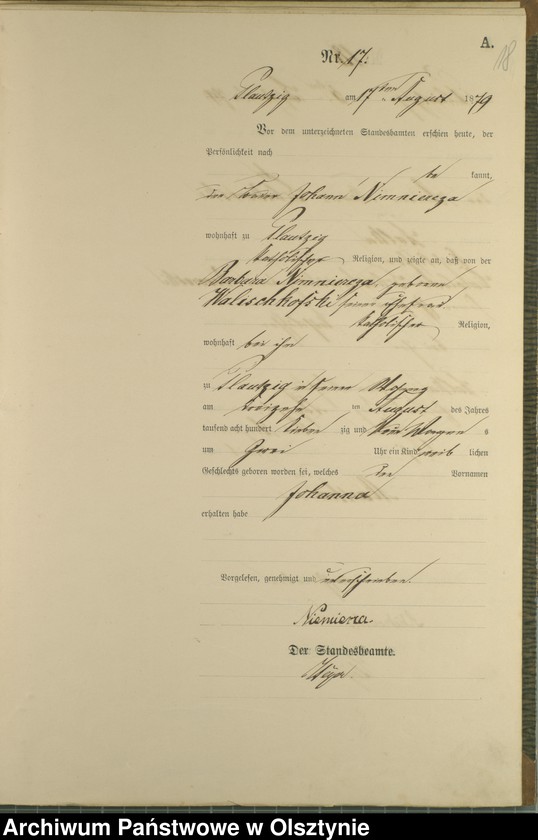 A.
18
Nr. 17.
Plautzig am 17ten August 1879
Vor dem unterzeichneten Standesbeamten erschien heute, der
Persönlichkeit nach
be kannt,
Johann Nimniercza
wohnhaft zu Plautzig
katholischer Religion, und zeigte an, daß von der
Barbara Nimniercza, geborne
Walischkofski seiner Ehefrau
katholischer Religion,
wohnhaft bei ihm
zu Plautzig in seiner Wohnung
am dreizehn ten August des Jahres
tausend acht hundert sieben zig und neun Morgen s
um zwei Uhr ein Kind weib lichen
Geschlechts geboren worden sei, welches den Vornamen
Johanna
erhalten habe
Vorgelesen, genehmigt und unterschrieben.
Niemierza.
Der Standesbeamte.
Archiwum Państwowe w Olsztynie